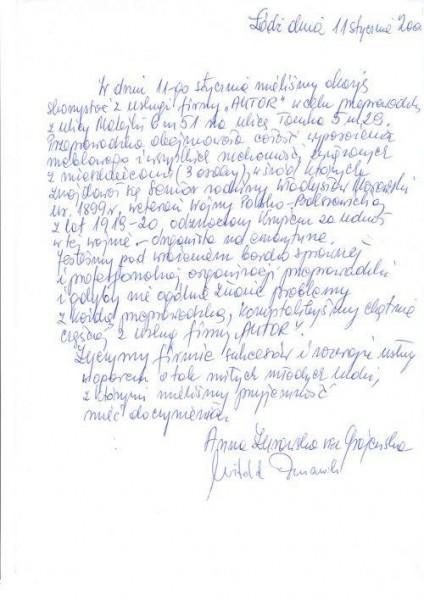 Łódź dnia 11 stycznia 200
W dniu 11-go stycznia mieliśmy okazję
skorzystać z usługi firmy "AUTOR" w celu przeprowadzki
z ulicy Matejki 6 m 51 na ulicę Tamka 5 m 29.
Przeprowadzka obejmowała całość wyposażenia
meblowego i wszystkie ruchomości związanych
z mieszkańcami (3 osoby) wśród których
znajdował się senior rodziny Władysław
ur. 1899 r. weteran Wojny Polsko-Bolszewickiej
z lat 1919-20, odznaczony Krzyżem za udział
w tej wojnie - organista na emeryturze.
Jesteśmy pod wrażeniem bardzo sprawnej
i profesjonalnej organizacji przeprowadzki
i gdyby nie ogólnie znane problemy
z każdą przeprowadzką, korzystalibyśmy chętnie
częściej z usług firmy "AUTOR".
Życzymy firmie sukcesów i rozwoju usług
w oparciu o tak miłych młodych ludzi,
z którymi mieliśmy przyjemność
mieć do czynienia.
Anna
Witold